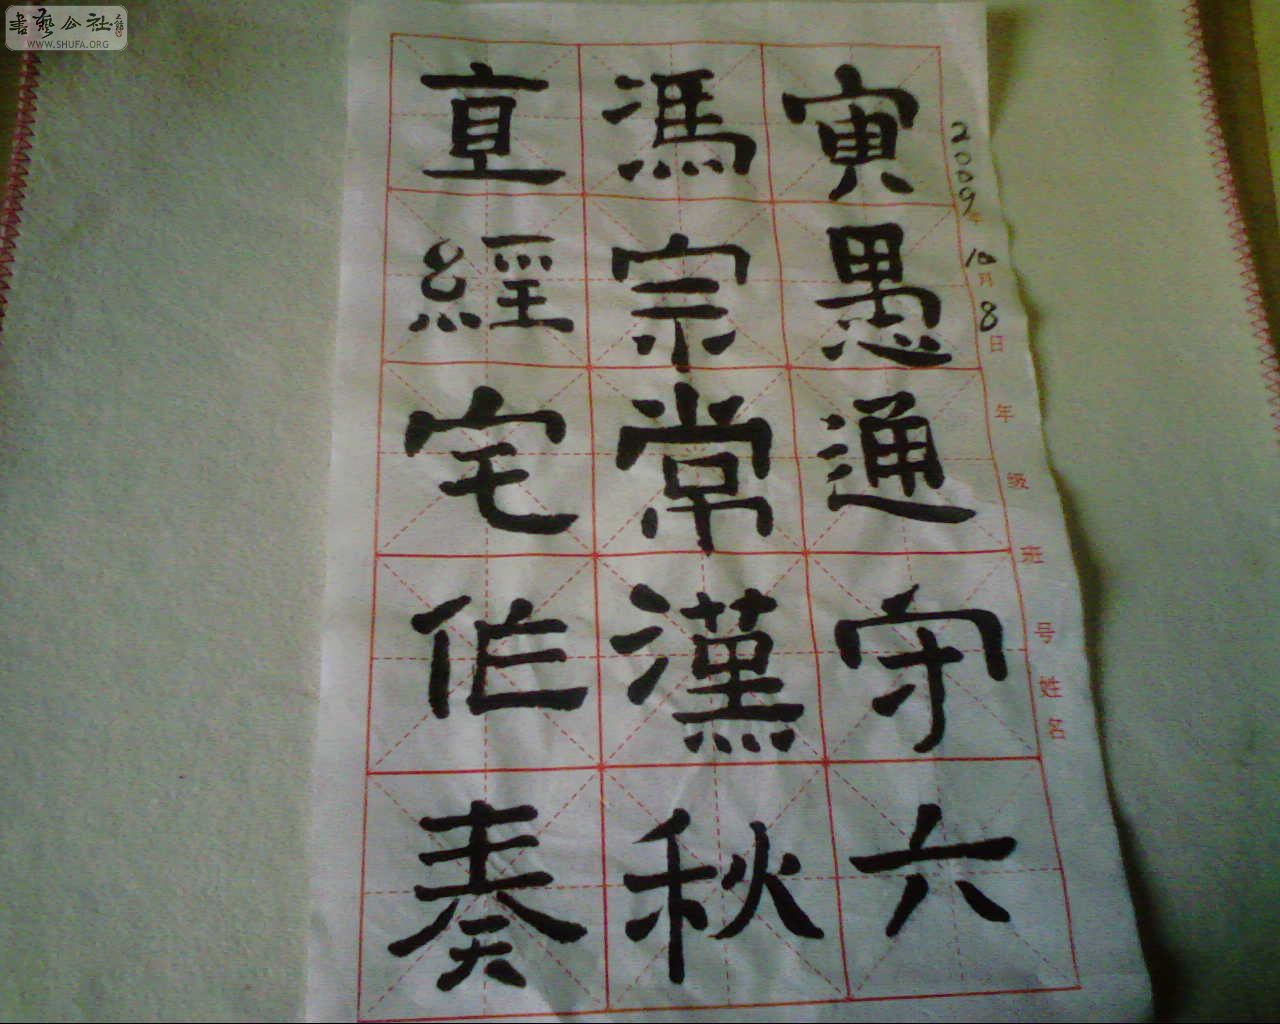 書藝公社
WWW.SHUFA.ORG
2009年10月8日 年级 班 号 姓名
寅愚通守六
馮宗常漢秋
直經宅作奏